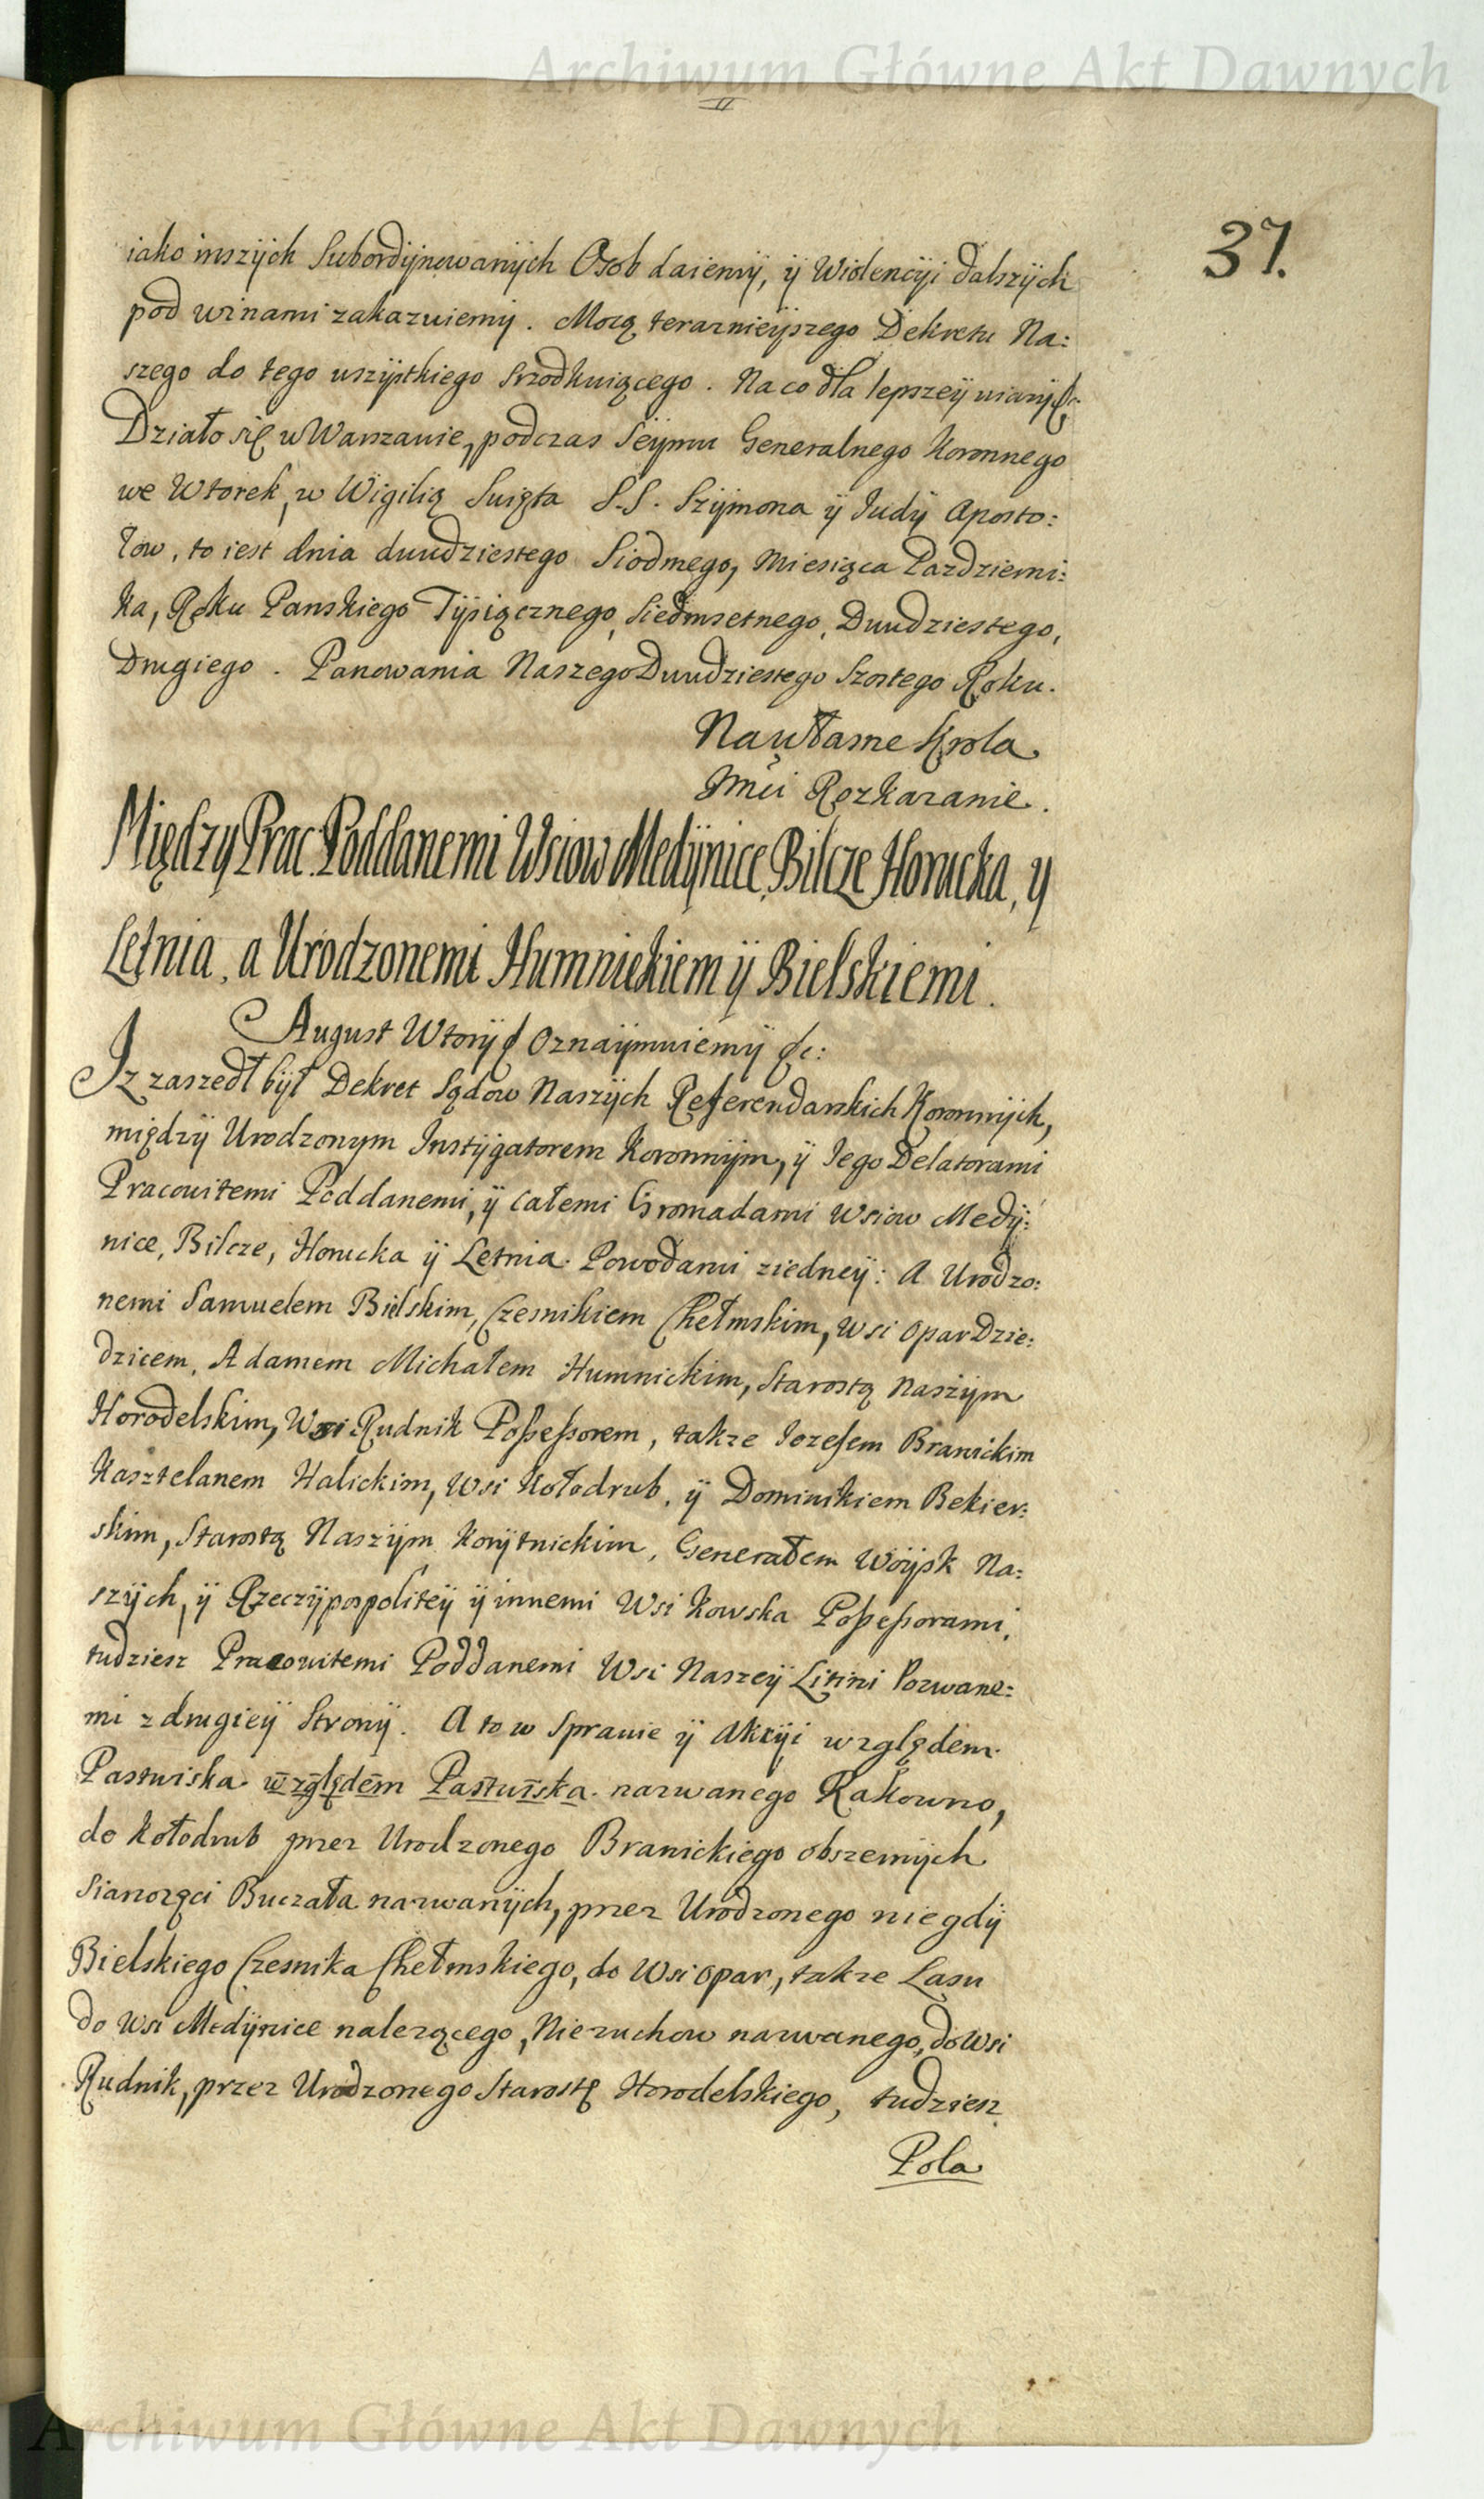 Archiwum Główne Akt Dawnych
37.
iako inszÿch Subordÿnowanÿch Osob daiemÿ, ÿ Wiolencÿi dalszÿch
pod winami zakazuiemÿ. Mocą teraznieÿszego Dekretu Na:
szego do tego wszÿstkiego srzodkuiącego. Na co dla lepszeÿ wiarÿ &c:
Działo się w Warszawie, podczas Seÿmu Generalnego Koronnego
we Wtorek, w Wigilią Swięta S.S. Szÿmona ÿ Judÿ Aposto:
łow, to iest dnia dwudziestego Siodmego, Miesiąca Pazdzierni:
ka, Roku Panskiego Tÿsiącznego, Siedmsetnego, Dwudziestego,
Drugiego. Panowania Naszego Dwudziestego Szostego Roku.
Na własne Krola
Jmći Rozkazanie.
Między Prac: Poddanemi Wsiow Medÿnice, Bilcze Horucka, y
Letnia, a Urodzonemi Humnickiem ÿ Bielskiemi.
August Wtorÿ & Oznaÿmuiemÿ &c:
Iz zaszedł bÿł Dekret Sądow Naszÿch Referendarskich Koronnÿch,
międzÿ Urodzonym Instÿgatorem Koronnÿm, ÿ Iego Delatorami
Pracowitemi Poddanemi, ÿ całemi Gromadami Wsiow Medÿ:
nice, Bilcze, Horucka ÿ Letnia. Powodami ziedneÿ: A Urodzo:
nemi Samuelem Bielskim, Czesnikiem Chełmskim, Wsi Opar Dzie:
dzicem, Adamem Michałem Humnickim, Starostą Naszÿm
Horodelskim, Wsi Rudnik Possessorem, takze Iozefem Branickim
Kasztelanem Halickim, Wsi Kołodrub, ÿ Dominikiem Bekier:
skim, Starostą Naszÿm Korÿtnickim, Generałem Woÿsk Na:
szÿch, ÿ Rzeczÿpospoliteÿ ÿ innemi Wsi Kowska Possessorami,
tudziesz Pracowitemi Poddanemi Wsi Naszeÿ Litini Pozwane:
mi z drugieÿ Stronÿ. A to w Sprawie ÿ Akcÿi względem
Pastwiska względem Pastwiska nazwanego Rakowno,
do Kołodrub przez Urodzonego Branickiego obszernÿch
Sianozęci Buczała nazwanÿch, przez Urodzonego niegdÿ
Bielskiego Czesnika Chełmskiego, do Wsi Opar, takze Lasu
do Wsi Medÿnice nalezącego, Niezuchow nazwanego, do Wsi
Rudnik, przez Urodzonego Starostę Horodelskiego, tudziesz
Pola
Archiwum Główne Akt Dawnych